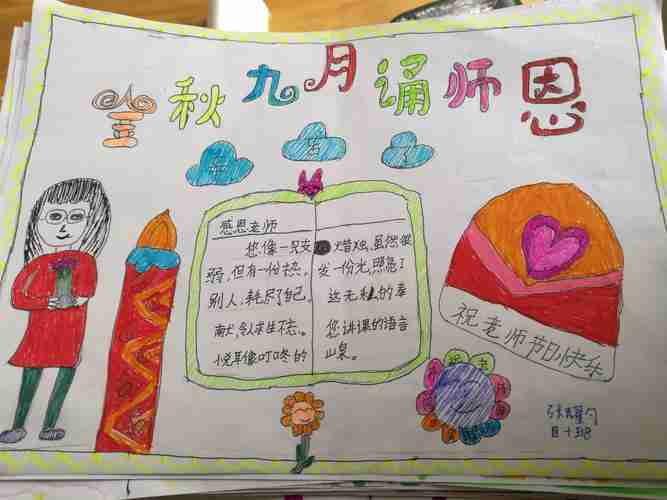 金秋九月诵师恩
辛苦了
感恩老师
您像一只支蜡烛,虽然很
弱,但有一份热。发一份光,照亮了
别人,耗尽了自己。这无私的奉
献,令人求生不忘。您讲课的语言
悦耳像叮咚的山泉。
祝老师节日快乐